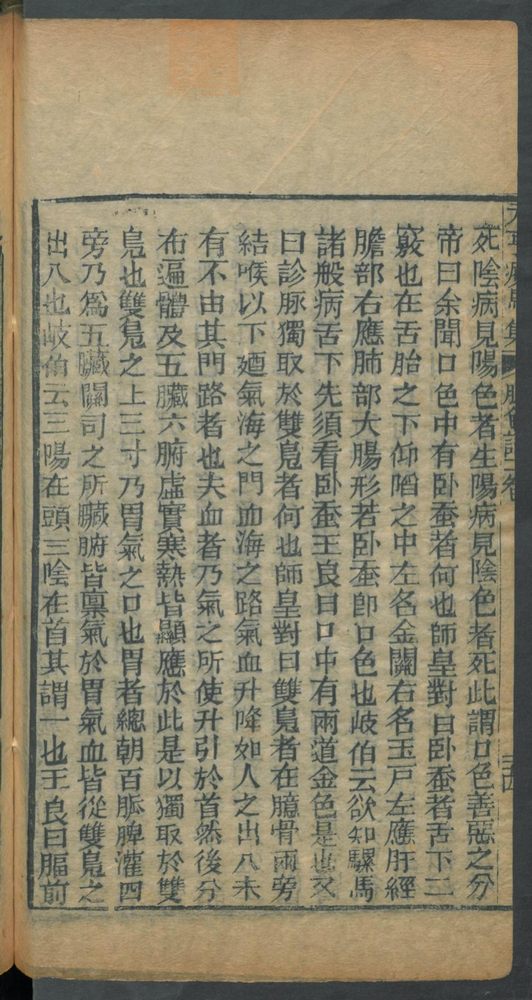 死陰病見陽色者生陽病見陰色者死此謂口色善惡之分
帝曰余聞口色中有卧蚕者何也師皇對曰卧蚕者舌下二
竅也在舌胎之下仰陷之中左名金關右名玉戸左應肝經
膽部右應肺部大腸形若卧蚕即口色也岐伯云欲知騾馬
諸般病舌下先須看卧蚕王良曰口中有兩道金色是也又
曰診脉獨取於雙鳧者何也師皇對曰雙鳧者在臆骨兩旁
結喉以下廼氣海之門血海之路氣血升降如人之出入未
有不由其門路者也夫血者乃氣之所使升引於首然後分
布遍體及五臟六腑虛實寒熱皆顯應於此是以獨取於雙
鳧也雙鳧之上三寸乃胃氣之口也胃者總朝百脈脾灌四
旁乃爲五臟關司之所臟腑皆稟氣於胃氣血皆從雙鳧之
出入也岐伯云三陽在頭三陰在首其謂一也王良曰膈前